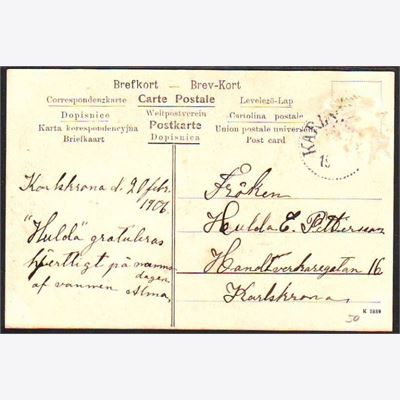 Brefkort — Brev-Kort
Correspondenzkarte Carte Postale Levelező-Lap
Dopisnice Weltpostverein Cartolina postale
Karta korespondencyjna Postkarte Union postale universelle
Briefkaart Dopisnica Post card
KARLS
19
Karlskrona d. 20 febr.
1906.
"Hulda" gratuleras
hjertligt på namns-
dagen
af vännen Alma.
Fröken
Hulda E. Pettersson
Handtverkaregatan 16
Karlskrona.
50